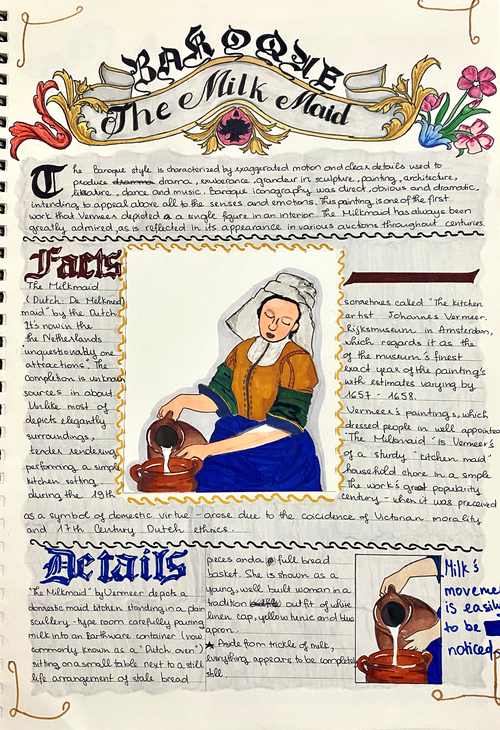 BAROQUE
The Milk Maid
The Baroque style is characterized by exaggerated motion and clear details used to
produce drama, exuberance, grandeur in sculpture, painting, architecture,
literature, dance and music. Baroque iconography was direct, obvious and dramatic,
intending to appeal above all to the senses and emotions. This painting is one of the first
work that Vermeer depicted a single figure in an interior. The Milkmaid has always been
greatly admired, as is reflected in its appearance in various auctions throughout centuries.
Facts
The Milkmaid
(Dutch: De Melkmeid) sometimes called "The kitchen
maid" by the Dutch artist Johannes Vermeer.
It's now in the Rijksmuseum in Amsterdam,
the Netherlands which regards it as the
"unquestionably one of the museum's finest
attractions". The exact year of the painting's
completion is unknown with estimates varying by
sources in about 1657 - 1658.
Unlike most of Vermeer's paintings, which
depicts elegantly dressed people in well appointed
surroundings, "The Milkmaid" is Vermeer's
tender rendering of a sturdy "kitchen maid"
performing a simple household chore in a simple
kitchen setting. The work's great popularity
during the 19th century - when it was preceived
as a symbol of domestic virtue - arose due to the cocidence of Victorian morality
and 17th Century Dutch ethnics.
Details
"The Milkmaid" by Vermeer depicts a
domestic maid kitchen standing in a plain
scullery-type room carefully pouring
milk into an Earthware container (now
commonly known as a "Dutch oven")
sitting on a small table next to a still
life arrangement of stale bread
pieces and a full bread
basket. She is shown as a
young, well built woman in a
tradition outfit of white
linen cap, yellow tunic and blue
apron.
★ Aside from trickle of milk,
everything appears to be completely
still.
Milk's
movement
is easily
to be
noticed.